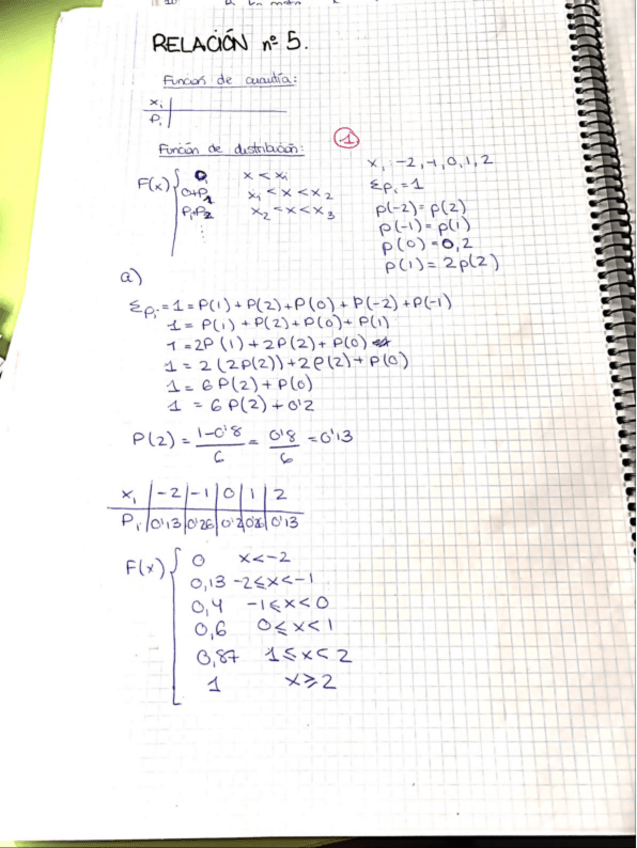 RELACIÓN nº 5.
Función de cuantía:
xᵢ
Pᵢ
①
Función de distribución:
F(x) { 0 x < xᵢ
0+P₁ x₁ < x < x₂
P₁+P₂ x₂ < x < x₃
⋮
xᵢ: -2, -1, 0, 1, 2
Σpᵢ = 1
p(-2) = p(2)
p(-1) = p(1)
p(0) = 0,2
p(1) = 2p(2)
a)
Σpᵢ = 1 = P(1) + P(2) + P(0) + P(-2) + P(-1)
1 = P(1) + P(2) + P(0) + P(1)
1 = 2P(1) + 2P(2) + P(0)
1 = 2(2P(2)) + 2P(2) + P(0)
1 = 6P(2) + P(0)
1 = 6P(2) + 0'2
P(2) = 1-0'8 / 6 = 0'8 / 6 = 0'13
xᵢ | -2 | -1 | 0 | 1 | 2
Pᵢ | 0'13 | 0'26 | 0'2 | 0'26 | 0'13
F(x) { 0 x < -2
0,13 -2 ≤ x < -1
0,4 -1 ≤ x < 0
0,6 0 ≤ x < 1
0,87 1 ≤ x < 2
1 x ≥ 2